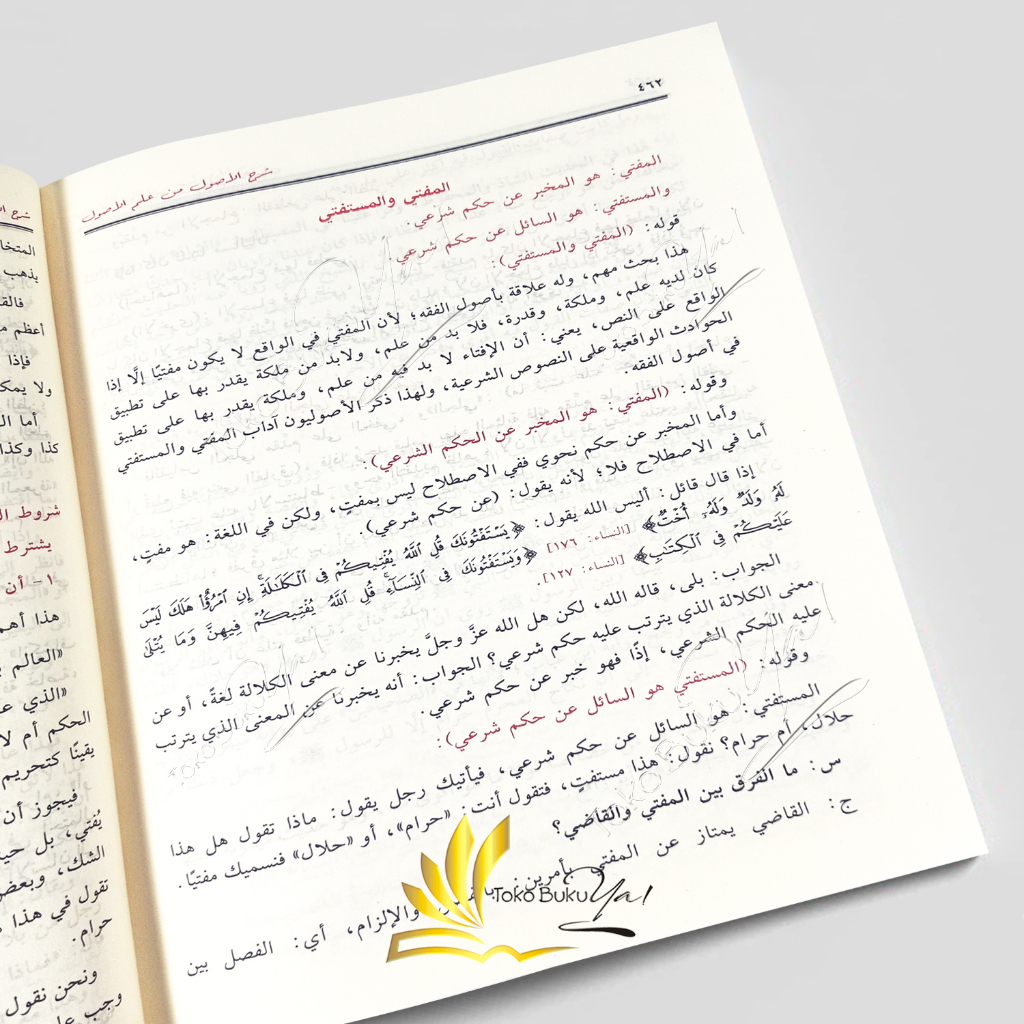 ٤٦٢
شرح الأصول من علم الأصول
المفتي والمستفتي
المفتي: هو المخبر عن حكم شرعي.
والمستفتي: هو السائل عن حكم شرعي.
قوله: (المفتي والمستفتي):
هذا بحث مهم، وله علاقة بأصول الفقه؛ لأن المفتي في الواقع لا يكون مفتيًا إلَّا إذا
كان لديه علم، وملكة، وقدرة، فلا بد من علم، ولابد من ملكة يقدر بها على تطبيق
الواقع على النص، يعني: أن الإفتاء لا بد فيه من علم، وملكة يقدر بها على تطبيق
الحوادث الواقعية على النصوص الشرعية، ولهذا ذكر الأصوليون آداب المفتي والمستفتي
في أصول الفقه.
وقوله: (المفتي: هو المخبر عن الحكم الشرعي):
وأما المخبر عن حكم نحوي ففي الاصطلاح ليس بمفتٍ، ولكن في اللغة: هو مفتٍ،
أما في الاصطلاح فلا؛ لأنه يقول: (عن حكم شرعي).
إذا قال قائل: أليس الله يقول: ﴿يَسْتَفْتُونَكَ قُلِ ٱللَّهُ يُفْتِيكُمْ فِي ٱلْكَلَٰلَةِ إِنِ ٱمْرُؤٌا۟ هَلَكَ لَيْسَ
لَهُۥ وَلَدٌ وَلَهُۥٓ أُخْتٌ﴾ [النساء: ١٧٦] ﴿وَيَسْتَفْتُونَكَ فِي ٱلنِّسَآءِ قُلِ ٱللَّهُ يُفْتِيكُمْ فِيهِنَّ وَمَا يُتْلَىٰ
عَلَيْكُمْ فِي ٱلْكِتَٰبِ﴾ [النساء: ١٢٧].
الجواب: بلى، قاله الله، لكن هل الله عزَّ وجلَّ يخبرنا عن معنى الكلالة لغةً، أو عن
معنى الكلالة الذي يترتب عليه حكم شرعي؟ الجواب: أنه يخبرنا عن المعنى الذي يترتب
عليه الحكم الشرعي، إذًا فهو خبر عن حكم شرعي.
وقوله: (المستفتي هو السائل عن حكم شرعي):
المستفتي: هو السائل عن حكم شرعي، فيأتيك رجل يقول: ماذا تقول هل هذا
حلال، أم حرام؟ نقول: هذا مستفتٍ، فتقول أنت: «حرام»، أو «حلال» فنسميك مفتيًا.
س: ما الفرق بين المفتي والقاضي؟
ج: القاضي يمتاز عن المفتي بأمرين: والإلزام، أي: الفصل بين
Toko Buku Ya!
شرح
يذهب
أعظم
فإذا
كذا وكذا
شروط
يشترط
١ - أن
هذا أهم
«العالم
«الذي
الحكم أم لا
يقينًا كتحريم
فيجوز أن
يُفتي، بل
الشك، وبعض
تقول في هذا
حرام.
ونحن نقول
وجب